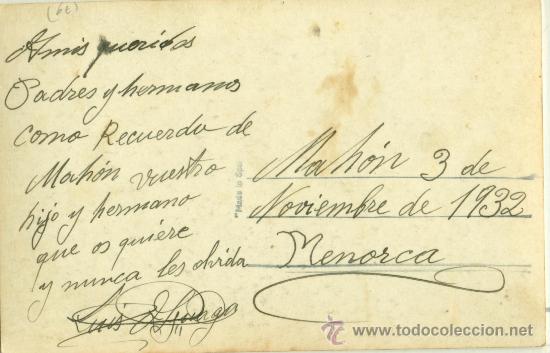 A mis queridos
Padres y hermanos
como Recuerdo de
Mahón vuestro
hijo y hermano
que os quiere
y nunca les olvida
Luis
Mahón 3 de
Noviembre de 1932
Menorca
"Made in Spain
todocoleccion.net